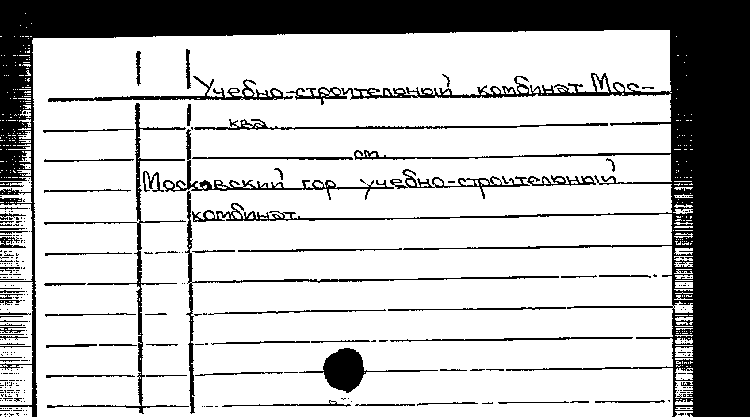 Учебно-строительный комбинат. Мос-
ква.
см.
Московский гор. учебно-строительный
комбинат.